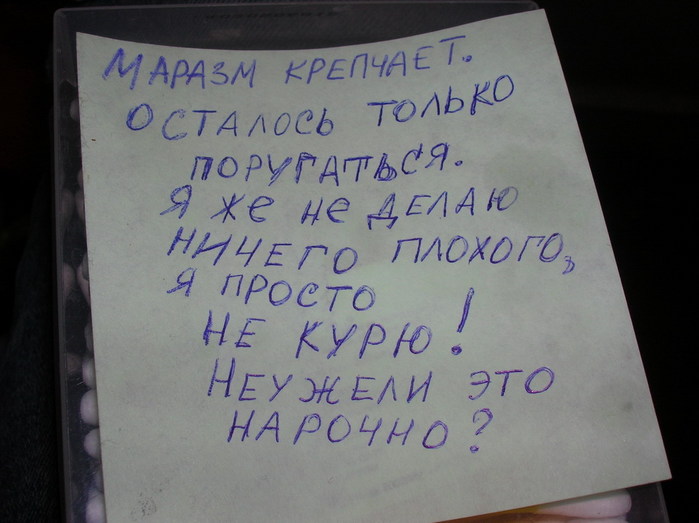 Маразм крепчает.
Осталось только
поругаться.
Я же не делаю
ничего плохого,
я просто
не курю!
Неужели это
нарочно?